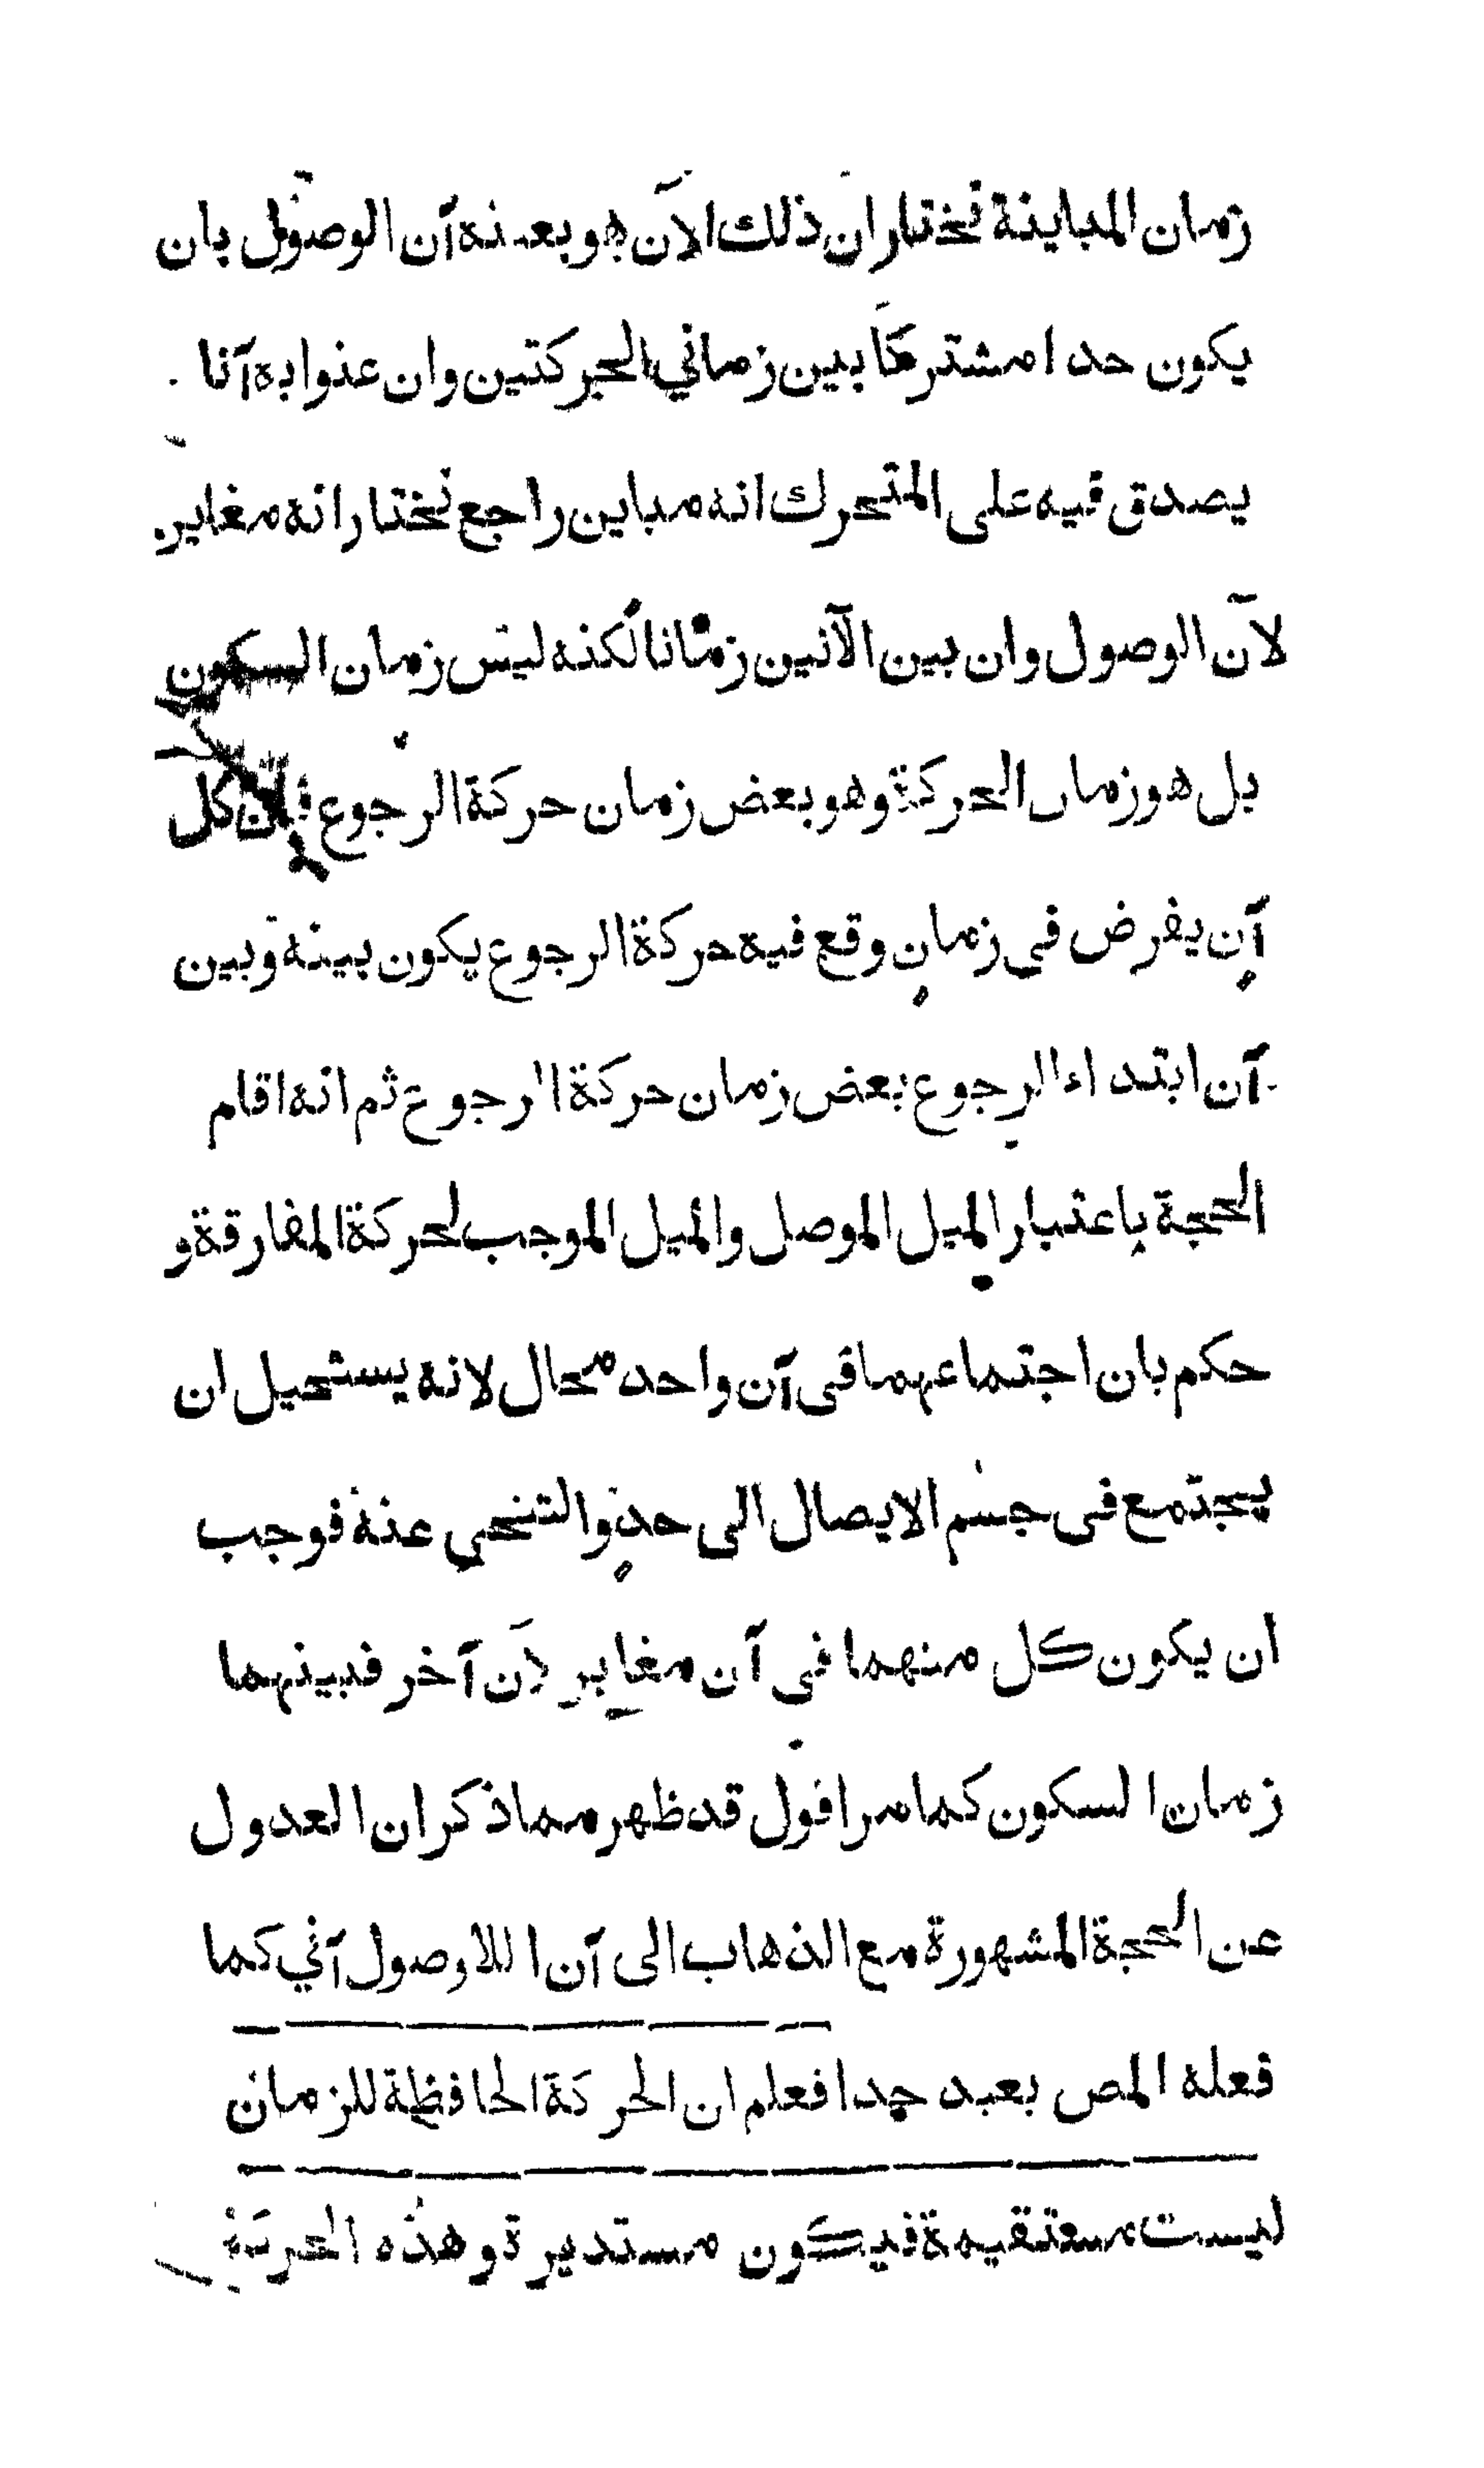 زمان المباينة نختار ان ذلك الآن هو بعينه آن الوصول بان
يكون حدا مشتركا بين زماني الحركتين وان عنوا به آنا
يصدق فيه على المتحرك انه مباين راجع نختار انه مغاير
لآن الوصول وان بين الآنين زمانا لكنه ليس زمان السكون
بل هو زمان الحركة وهو بعض زمان حركة الرجوع فان كل
آن يفرض في زمان وقع فيه حركة الرجوع يكون بينه وبين
آن ابتداء الرجوع بعض زمان حركة الرجوع ثم انه اقام
الحجة باعتبار الميل الموصل والميل الموجب لحركة المفارقة و
حكم بان اجتماعهما في آن واحد محال لانه يستحيل ان
يجتمع في جسم الايصال الى حدٍ والتنحي عنه فوجب
ان يكون كل منهما في آن مغاير لآن آخر فبينهما
زمان السكون كما مر اقول قد ظهر مما ذكر ان العدول
عن الحجة المشهورة مع الذهاب الى آن اللاوصول آني كما
فعله المص بعيد جدا فعلم ان الحركة الحافظة للزمان
ليست مستقيمة فيكون مستديرة وهذه الحركة